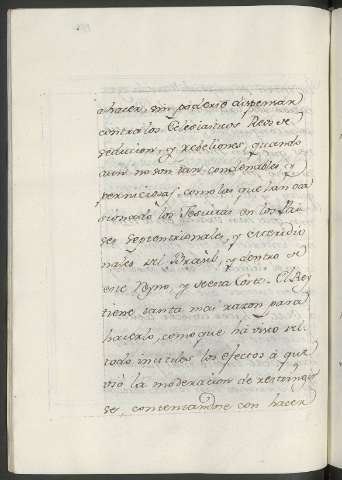 ahacer sin poderio dispensar
contra los Eclesiasticos Reos de
sedicion, y rebeliones, quando
aun no son tan condenables, y
perniciosas, como las que han oca
sionado los Jesuitas en los Pai
ses Septentrionales, y meridio
nales del Brasil, y dentro de
este Reyno, y de esta Corte. El Rey
tiene tanta mas razon para
hacerlo, como que há visto del
todo inutiles los efectos à que
vió la moderacion de restringir
se, contentandose con hacer